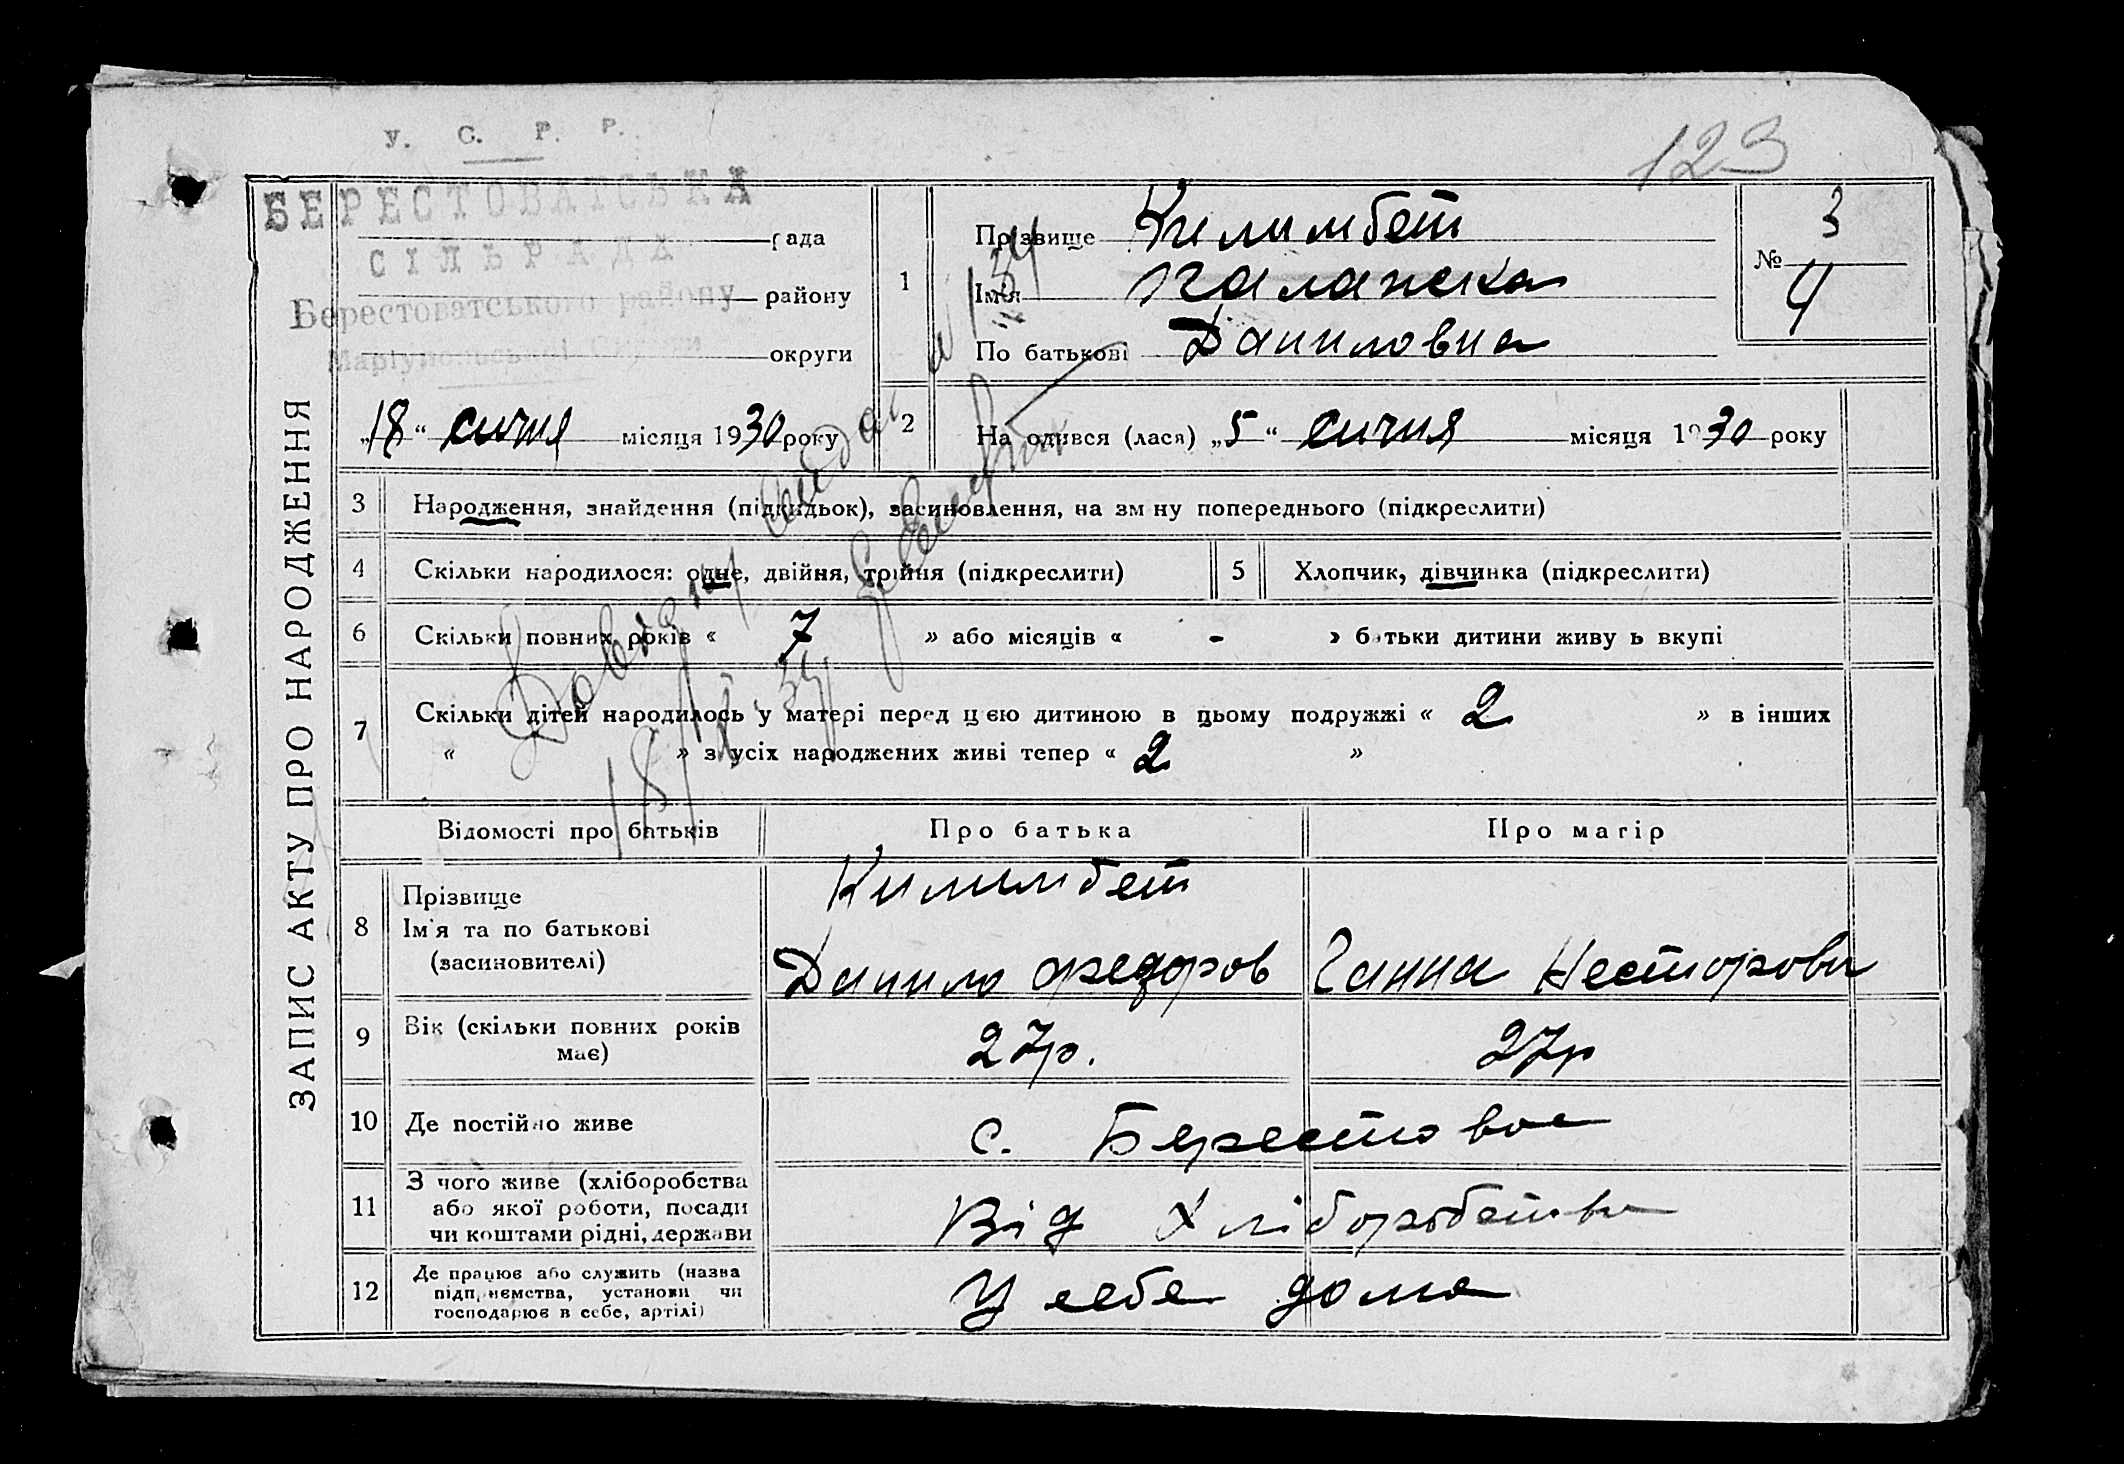 123
У. С. Р. Р.
БЕРЕСТОВАТСЬКА
рада
СІЛЬРАДА
Берестоватського району
району
Маріупольської Округи
округи
„18“ січня місяця 1930 року
ЗАПИС АКТУ ПРО НАРОДЖЕННЯ
1 Прізвище Килимбет
Ім'я
По батькові Даниловна
№ 3
4
2 Народився (лася) „5“ січня місяця 1930 року
3 Народження, знайдення (підкидьок), засиновлення, на зміну попереднього (підкреслити)
4 Скільки народилося: одне, двійня, трійня (підкреслити) 5 Хлопчик, дівчинка (підкреслити)
6 Скільки повних років « 7 » або місяців « - » батьки дитини живуть вкупі
7 Скільки дітей народилось у матері перед цією дитиною в цьому подружжі « 2 » в інших
« » з усіх народжених живі тепер « 2 »
18/X-34
Відомості про батьків Про батька Про матір
8 Прізвище
Ім'я та по батькові
(засиновителі)
Килимбет
Данило Федоров Ганна Несторовн
9 Вік (скільки повних років
має)
27р. 27р
10 Де постійно живе с. Берестовое
11 З чого живе (хліборобства
або якої роботи, посади
чи коштами рідні, держави
Від Хліборобства
12 Де працює або служить (назва
підприємства, установи чи
господарює в себе, артілі)
У себе дома